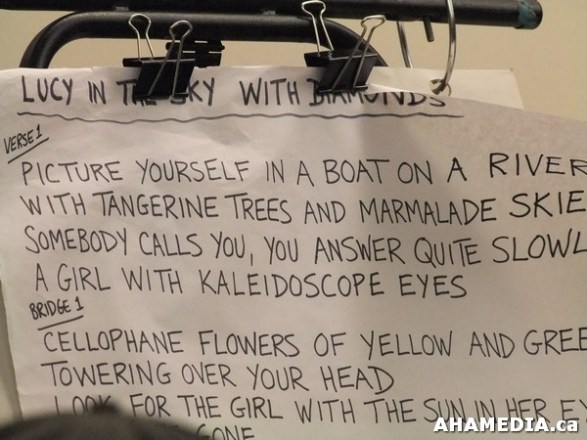 LUCY IN THE SKY WITH DIAMONDS
VERSE 1
PICTURE YOURSELF IN A BOAT ON A RIVER
WITH TANGERINE TREES AND MARMALADE SKIE
SOMEBODY CALLS YOU, YOU ANSWER QUITE SLOWL
A GIRL WITH KALEIDOSCOPE EYES
BRIDGE 1
CELLOPHANE FLOWERS OF YELLOW AND GREE
TOWERING OVER YOUR HEAD
LOOK FOR THE GIRL WITH THE SUN IN HER EY
GONE
AHAMEDIA.ca